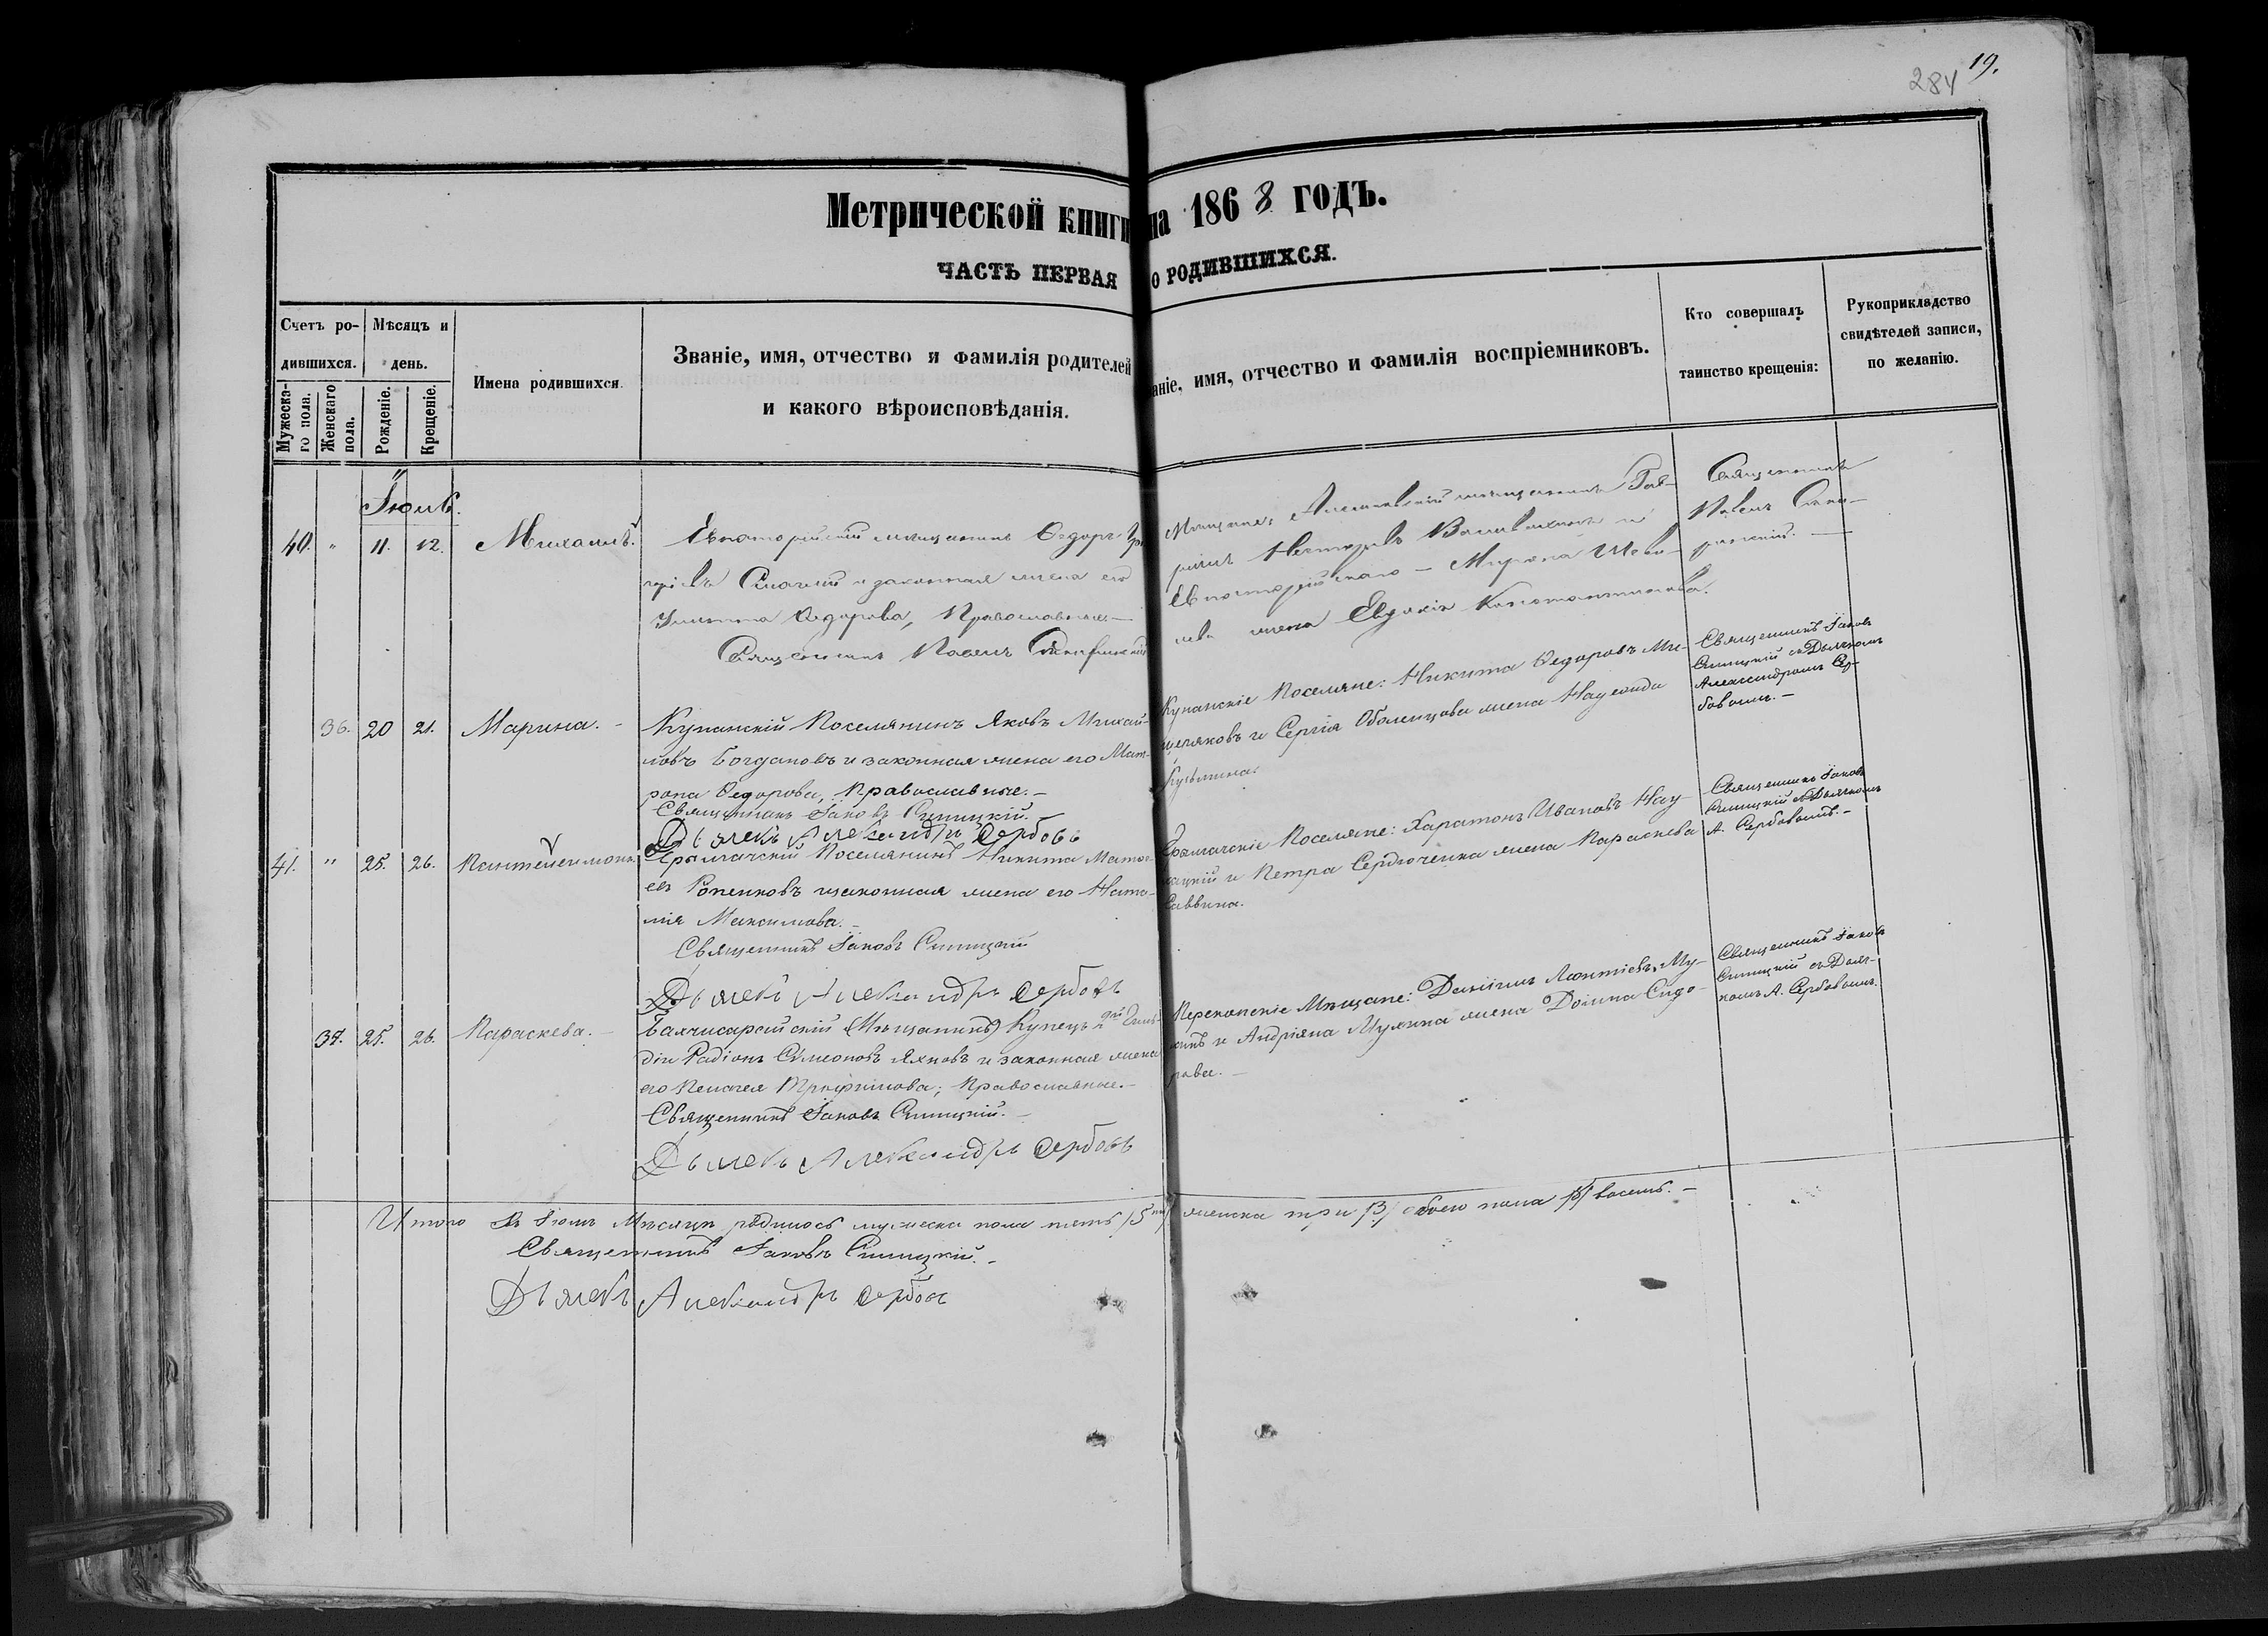 284 19.
Метрической книги на 1868 годъ.
ЧАСТЬ ПЕРВАЯ О РОДИВШИХСЯ.
Счетъ ро-
дившихся.
Мужеска-
го пола.
Женскаго
пола.
Мѣсяцъ и
день.
Рожденіе.
Крещеніе.
Имена родившихся.
Званіе, имя, отчество и фамилія родителей
и какого вѣроисповѣданія.
аніе, имя, отчество и фамилія воспріемниковъ.
Кто совершалъ
таинство крещенія:
Рукоприкладство
свидѣтелей записи,
по желанію.
Іюль.
40. " 11. 12. Михаилъ.
Евпаторійскій мѣщанинъ Ѳедоръ
и законная жена его
Ѳедорова, Православные
Священникъ Павелъ
мѣщанинъ Гав-
рилъ Несторовъ и
Евпаторійскаго — Мирона
жена Евдокія Константинова.
Священникъ
Павелъ
36. 20 21. Марина. -
Купанскій Поселянинъ Яковъ Михай-
ловъ Богдановъ и законная жена его Мат-
рона Ѳедорова, Православные. -
Священникъ Іаковъ Синицкій. -
Дьячекъ Александръ Сербовъ
Купанскіе Поселяне: Никита Ѳедоровъ Ми-
щеряковъ и Сергія Оболенцова жена
Кузьмина.
Священникъ Іаковъ
Синицкій съ Дьячкомъ
Александромъ Сер-
бовымъ. -
41. " 25. 26. Пантелеимонъ
Поселянинъ Никита
ев и законная жена его Ната-
лія Максимова. -
Священникъ Іаковъ Синицкій
Дьячекъ Александръ Сербовъ
Поселяне: Харитонъ Ивановъ Нау-
мацкій и Петра Сердюченка жена Параскева
Саввина.
Священникъ Іаковъ
Синицкій съ Дьячкомъ
А. Сербовымъ. -
37. 25. 26. Параскева. -
Бахчисарайскій (Мѣщанинъ) Купецъ 2й Гиль-
діи Радіонъ Сѵмеоновъ Яхновъ и законная жена
его Пелагея Трофимова; Православные. -
Священникъ Іаковъ Синицкій. -
Дьячекъ Александръ Сербовъ
Перекопскіе Мѣщане: Даніилъ Леонтіевъ Му-
и Андріяна жена Домна Сидо-
рова. -
Священникъ Іаковъ
Синицкій съ Дьяч-
комъ А. Сербовымъ.
Итого въ Іюлѣ Мѣсяцѣ родилось мужеска пола пять /5/ женска три /3/ обоего пола /8/ восемь. -
Священникъ Іаковъ Синицкій. -
Дьячекъ Александръ Сербовъ